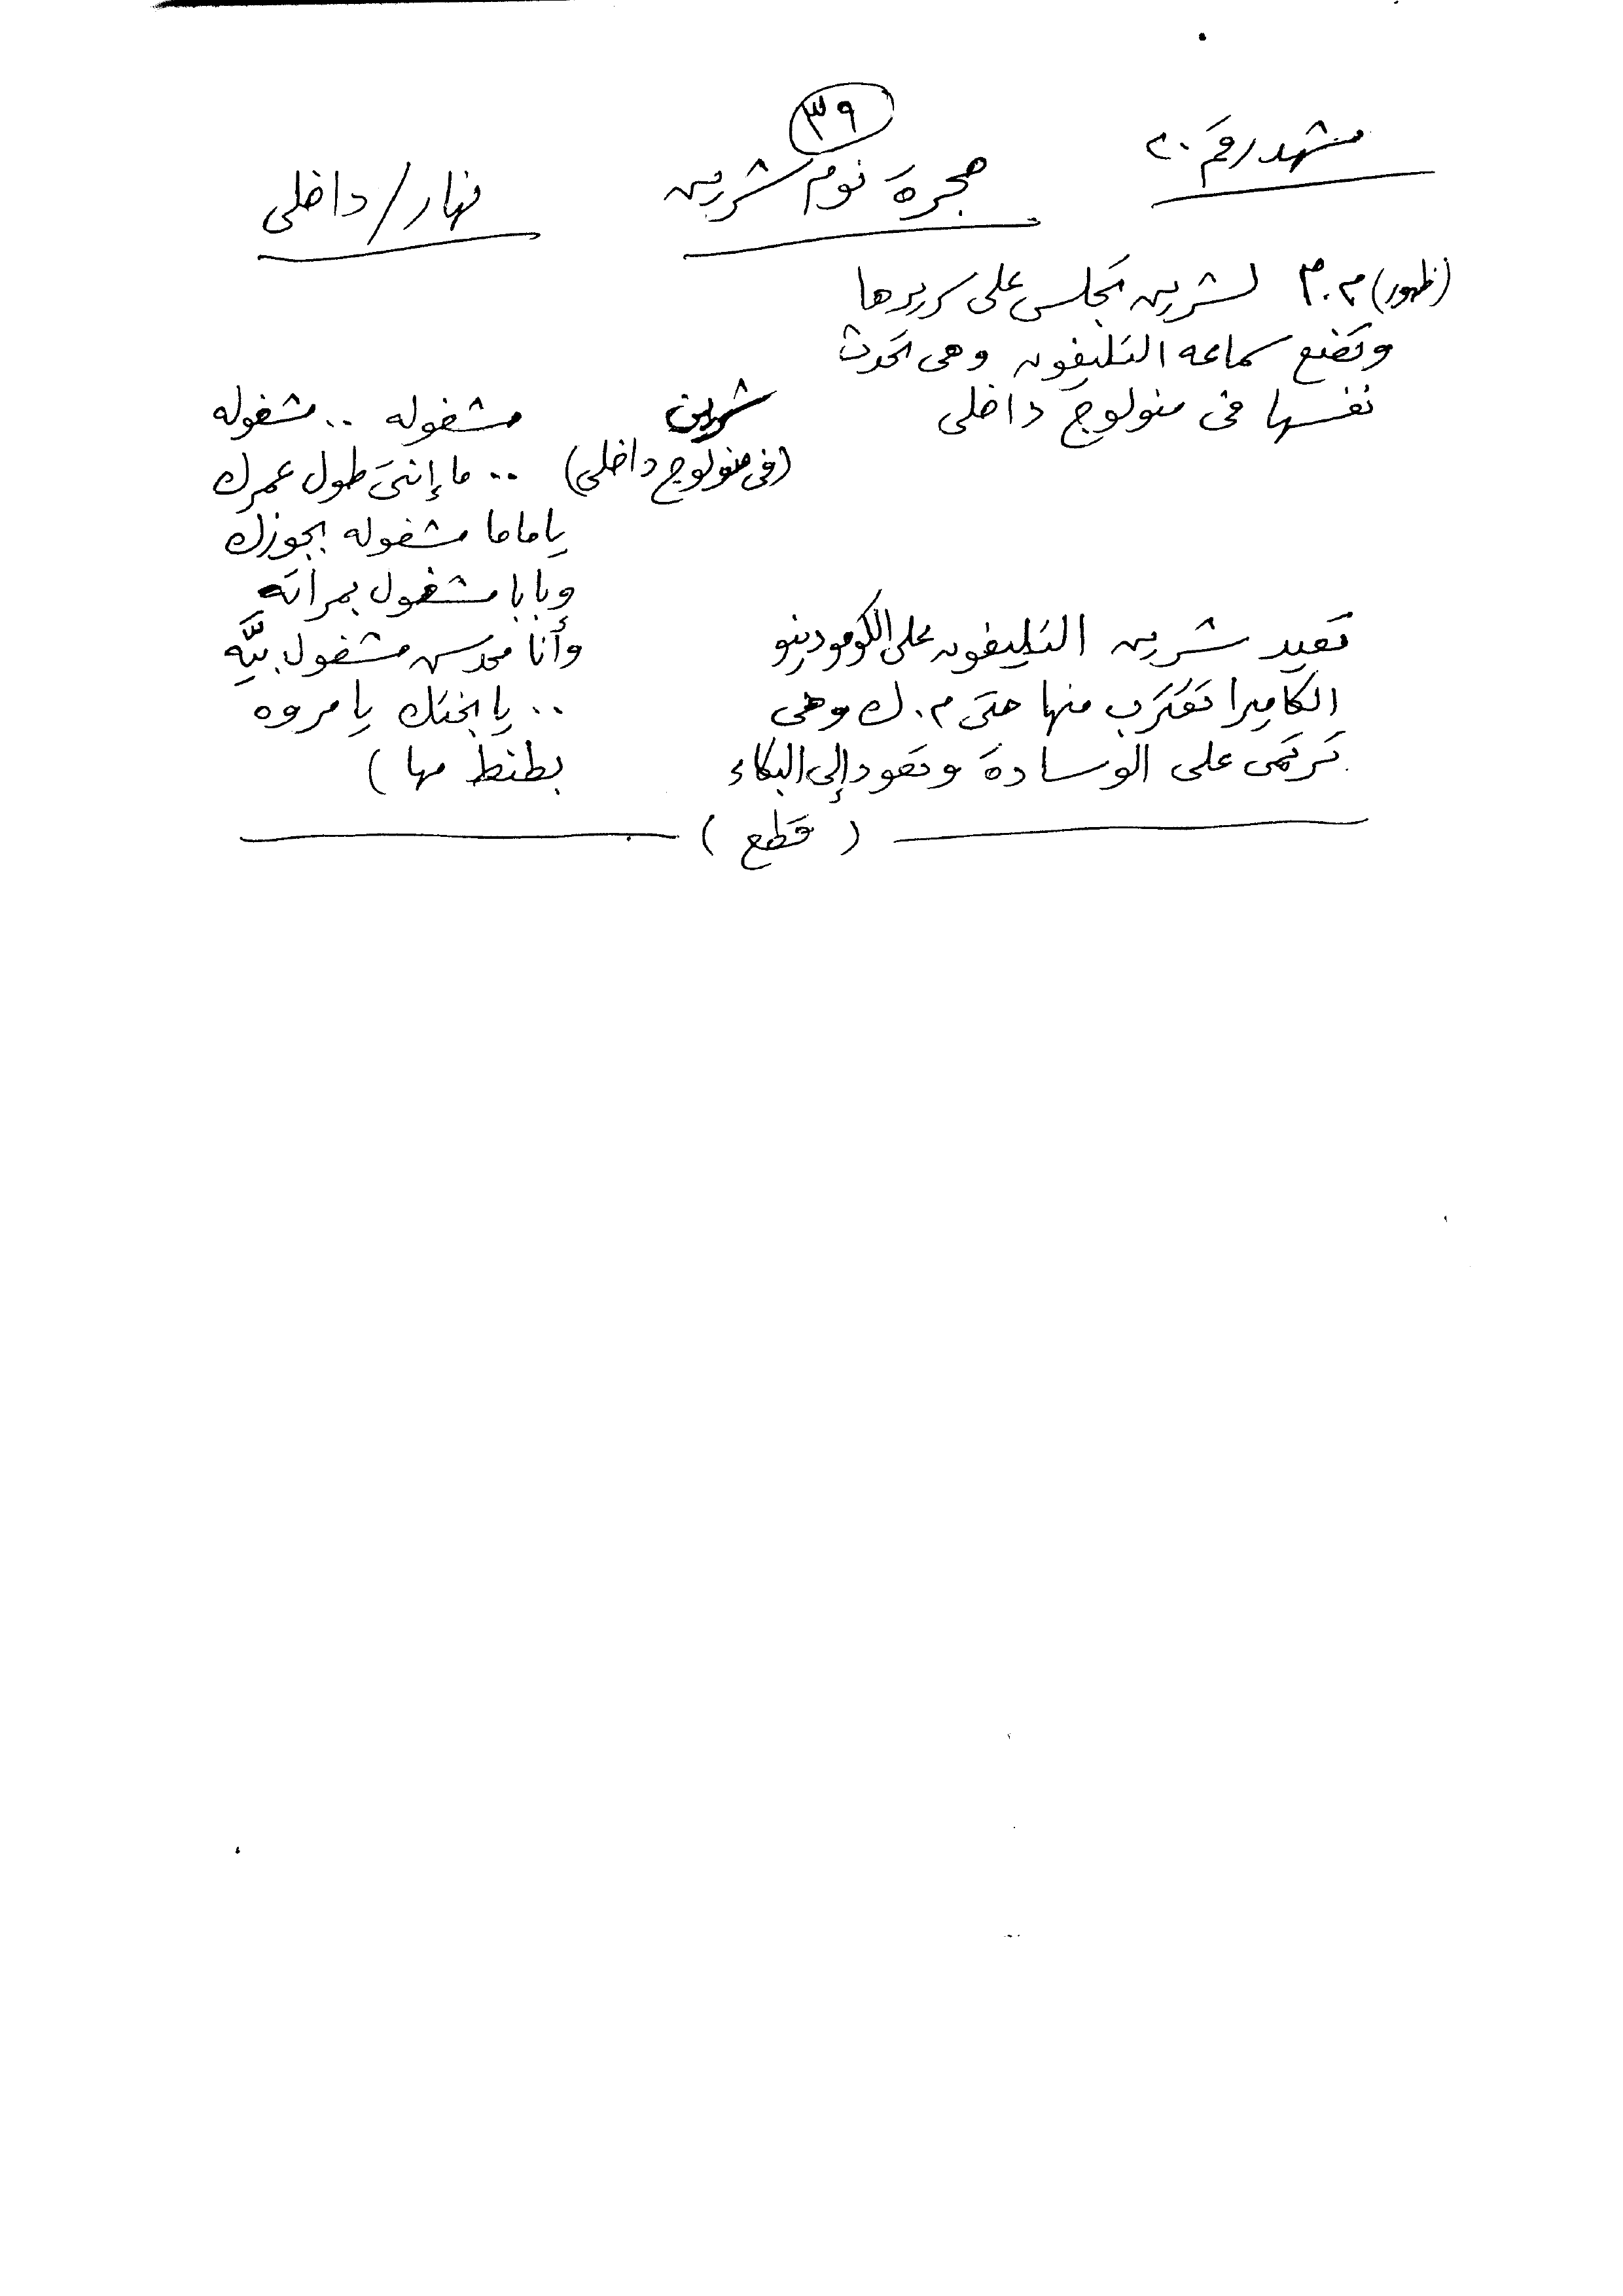 ٣٩
مشهد رقم ٢٠
حجرة نوم شرين
نهار / داخلى
(ظهور) م.م لشرين تجلس على سريرها
وتضع سماعه التليفون وهى تحدث
نفسها فى منولوج داخلى
شرين
(فى منولوج داخلى)
مشغوله .. مشغوله
.. ما إنتى طول عمرك
ياماما مشغوله بجوزك
وبابا مشغول بمراته
وأنا محدش مشغول بيَّه
.. يا بختك يا مروه
بطنط مها )
تعيد شرين التليفون على الكومودينو
الكاميرا تقترب منها حتى م.ك وهى
ترتمى على الوسادة وتعود إلى البكاء
( قطع )